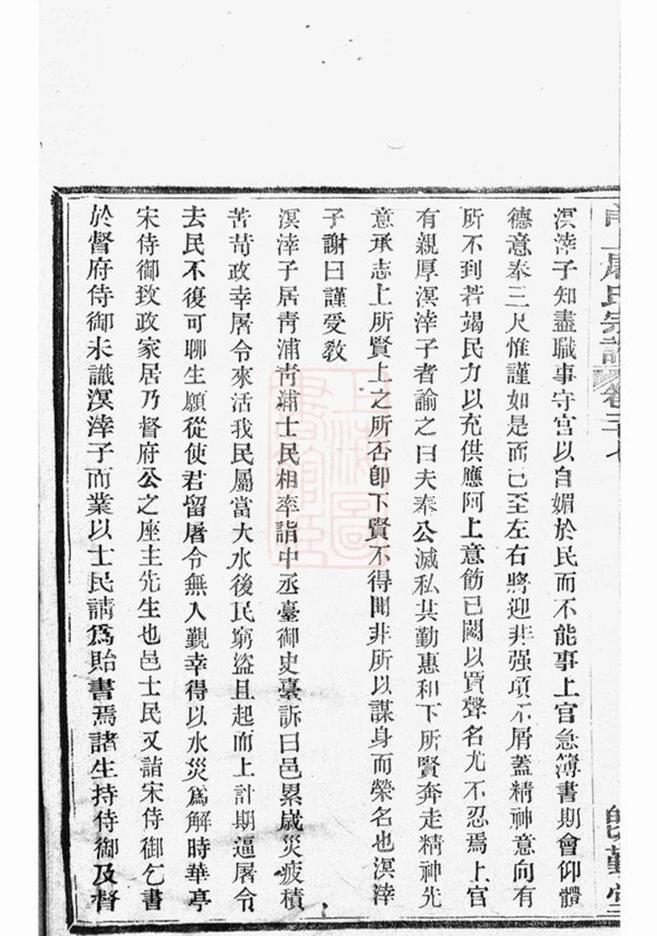 甬上屠氏宗譜 卷三十七
既勤堂
溟涬子知盡職事守官以自媚於民而不能事上官急簿書期會仰體
德意奉三尺惟謹如是而已至左右將迎非强項不屑蓋精神意向有
所不到若竭民力以充供應阿上意飭已闕以買聲名尤不忍焉上官
有親厚溟涬子者諭之曰夫奉公滅私共勤惠和下所賢奔走精神先
意承志上所賢上之所否卽下賢不得聞非所以謀身而榮名也溟涬
子謝曰謹受敎
溟涬子居靑浦靑浦士民相率詣中丞臺御史臺訴曰邑累歲災疲積
苦苛政幸屠令來活我民屬當大水後民窮盜且起而上計期逼屠令
去民不復可聊生願從使君留屠令無入覲幸得以水災爲解時華亭
宋侍御致政家居乃督府公之座主先生也邑士民又詣宋侍御乞書
於督府侍御未識溟涬子而業以士民請爲貽書焉諸生持侍御及督